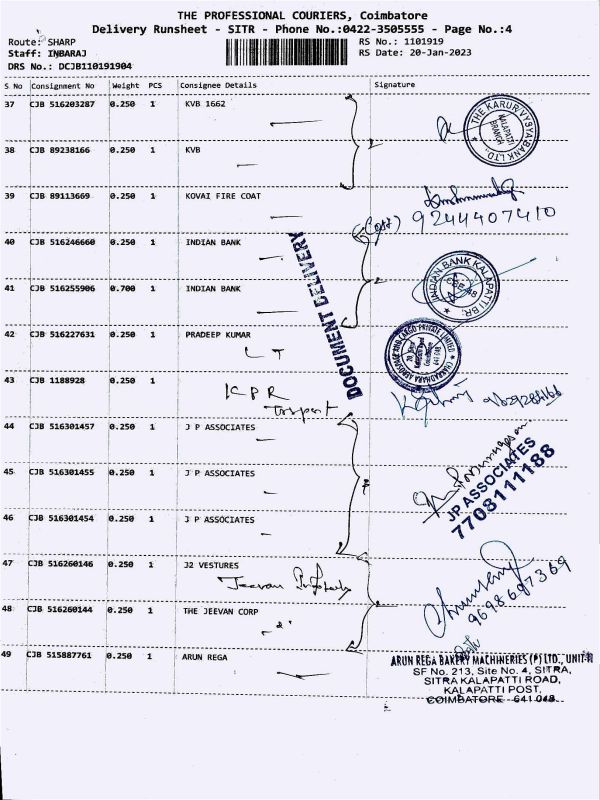 THE PROFESSIONAL COURIERS, Coimbatore
Delivery Runsheet - SITR - Phone No.:0422-3505555 - Page No.:4
Route: SHARP
RS No.: 1101919
Staff: INBARAJ
RS Date: 20-Jan-2023
DRS No.: DCJB110191904
S No Consignment No Weight PCS Consignee Details Signature
37 CJB 516203287 0.250 1 KVB 1662
THE KARUR VYSYA BANK LTD.,
KALAPATTI BRANCH
38 CJB 89238166 0.250 1 KVB
39 CJB 89113669 0.250 1 KOVAI FIRE COAT
9244407410
40 CJB 516246660 0.250 1 INDIAN BANK
41 CJB 516255906 0.700 1 INDIAN BANK
INDIAN BANK KALAPATTI BR.
CBE-48
DOCUMENT DELIVERY
42 CJB 516227631 0.250 1 PRADEEP KUMAR
LT
43 CJB 1188928 0.250 1
KPR
44 CJB 516301457 0.250 1 J P ASSOCIATES
45 CJB 516301455 0.250 1 J P ASSOCIATES
JP ASSOCIATES
7708111188
46 CJB 516301454 0.250 1 J P ASSOCIATES
47 CJB 516260146 0.250 1 J2 VESTURES
Jeevan
9698697369
48 CJB 516260144 0.250 1 THE JEEVAN CORP
49 CJB 515887761 0.250 1 ARUN REGA
ARUN REGA BAKERY MACHINERIES (P) LTD., UNIT-II
SF No. 213, Site No. 4, SITRA,
SITRA KALAPATTI ROAD,
KALAPATTI POST,
COIMBATORE - 641 048.